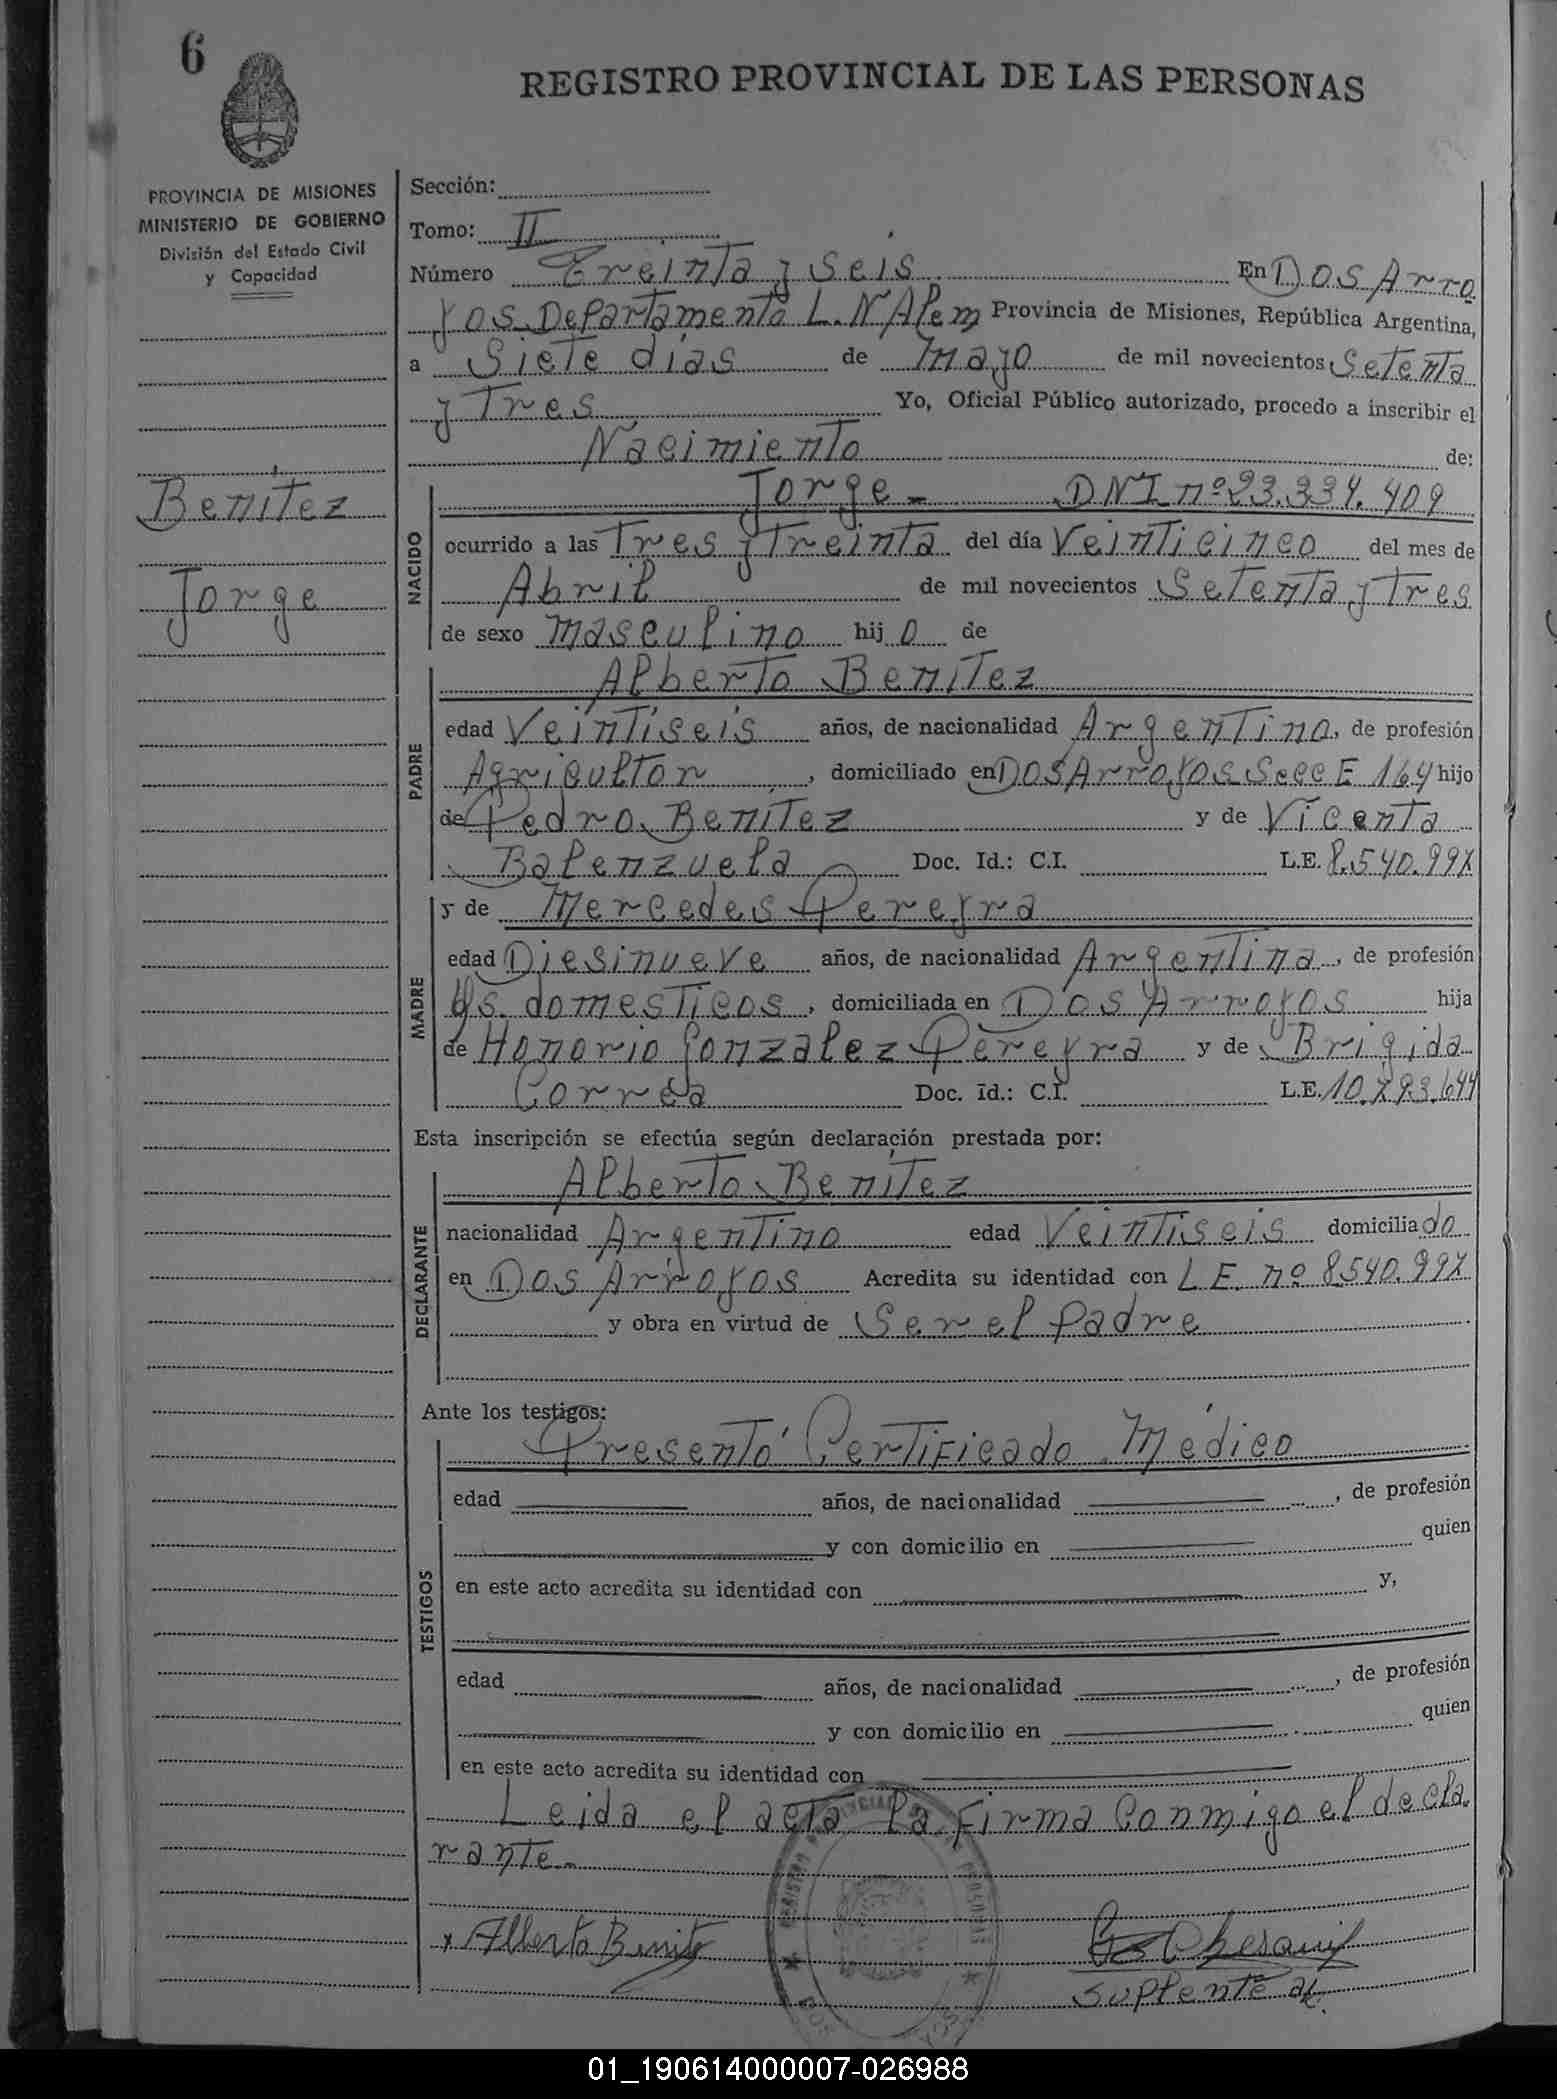 6
REGISTRO PROVINCIAL DE LAS PERSONAS
PROVINCIA DE MISIONES
MINISTERIO DE GOBIERNO
División del Estado Civil
y Capacidad
Benítez
Jorge
Sección:
Tomo: II
Número Treinta y seis En Dos Arro
yos Departamento L. N Alem Provincia de Misiones, República Argentina,
a Siete días de Mayo de mil novecientos Setenta
y Tres Yo, Oficial Público autorizado, procedo a inscribir el
Nacimiento de:
NACIDO
Jorge - DNI nº 23.334.409
ocurrido a las Tres y Treinta del día Veinticinco del mes de
Abril de mil novecientos Setenta y Tres
de sexo Masculino hijo de
PADRE
Alberto Benítez
edad Veintiseis años, de nacionalidad Argentina, de profesión
Agricultor, domiciliado en Dos Arroyos Secc E 164 hijo
de Pedro Benítez y de Vicenta
Balenzuela Doc. Id.: C.I. L.E. 8.540.997
MADRE
y de Mercedes Pereyra
edad Diesinueve años, de nacionalidad Argentina, de profesión
Qs. domesticos, domiciliada en Dos Arroyos hija
de Honorio Gonzalez Pereyra y de Brigida
Correa Doc. Id.: C.I. L.E. 10.793.644
Esta inscripción se efectúa según declaración prestada por:
DECLARANTE
Alberto Benítez
nacionalidad Argentino edad Veintiseis domiciliado
en Dos Arroyos Acredita su identidad con L E. nº 8540.997
y obra en virtud de Ser el Padre
Ante los testigos:
TESTIGOS
Presentó Certificado Médico
edad años, de nacionalidad , de profesión
y con domicilio en quien
en este acto acredita su identidad con y,
edad años, de nacionalidad , de profesión
y con domicilio en quien
en este acto acredita su identidad con
Leida el acta la Firma Conmigo el decla
rante.-
x Alberto Benitez
Suplente
01_190614000007-026988